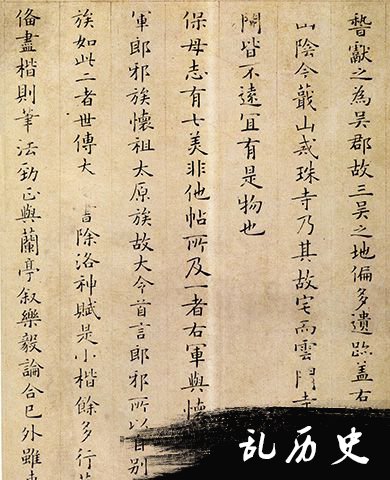 獻之為吳郡故三吳之地偏多遺跡盖右
山陰今蕺山戒珠寺乃其故宅而雲門寺
皆不遠冝有是物也
保母志有七美非他帖所及一者右軍與懷
軍耶邪族懷祖太原族故大令首言耶邪所以自別
族如此二者世傳大 除洛神賦是小楷餘多行
俻盡楷則筆法勁正與蘭亭叙樂毅論合已外雖
乱历史